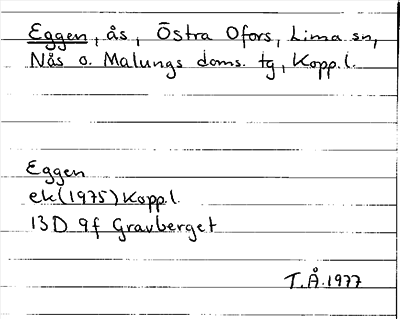 Eggen, ås, Östra Ofors, Lima sn,
Nås o. Malungs doms. tg, Kopp.l.
Eggen
ek(1975)Kopp.l.
13D 9f Gravberget
T.Å.1977